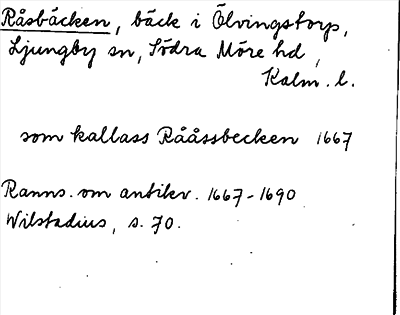 Råsbäcken, bäck i Ölvingstorp,
Ljungby sn, Södra Möre hd,
Kalm. l.
som kallass Rååssbecken 1667
Ranns. om antikv. 1667-1690
Wilstadius, s. 70.